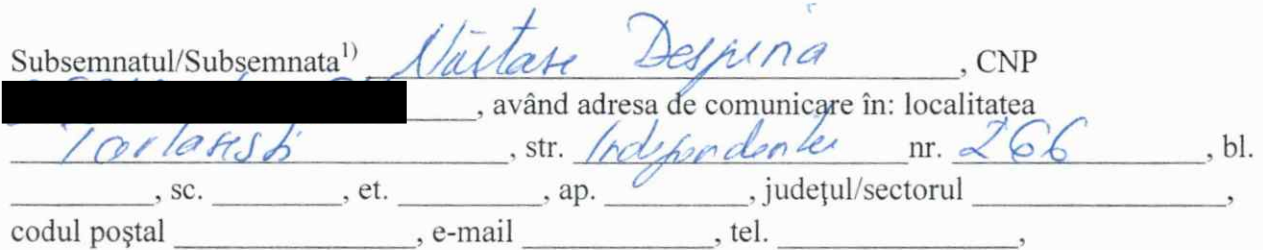 Subsemnatul/Subsemnata¹⁾ Năstase Despina, CNP
, având adresa de comunicare în: localitatea
, str. Independentei nr. 266, bl.
, sc. , et. , ap. , județul/sectorul ,
codul poștal , e-mail , tel. ,